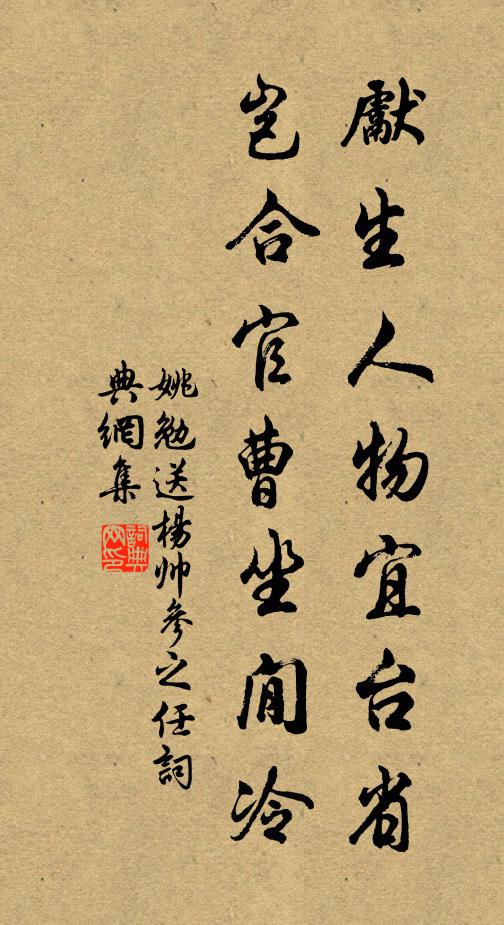 獻生人物宜台省
豈合官曹坐閒冷
姚勉送楊帥參之任詞
典網集
詞典
网印